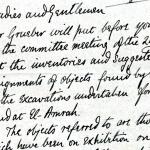 adies and Gentlemen
r Grueber will put before you
the committee meeting of the 2
t the inventories and suggeste
signments of objects found by
the excavations undertaken for
d at El-Amrah.
The objects referred to are th
ich have been on exhibition on